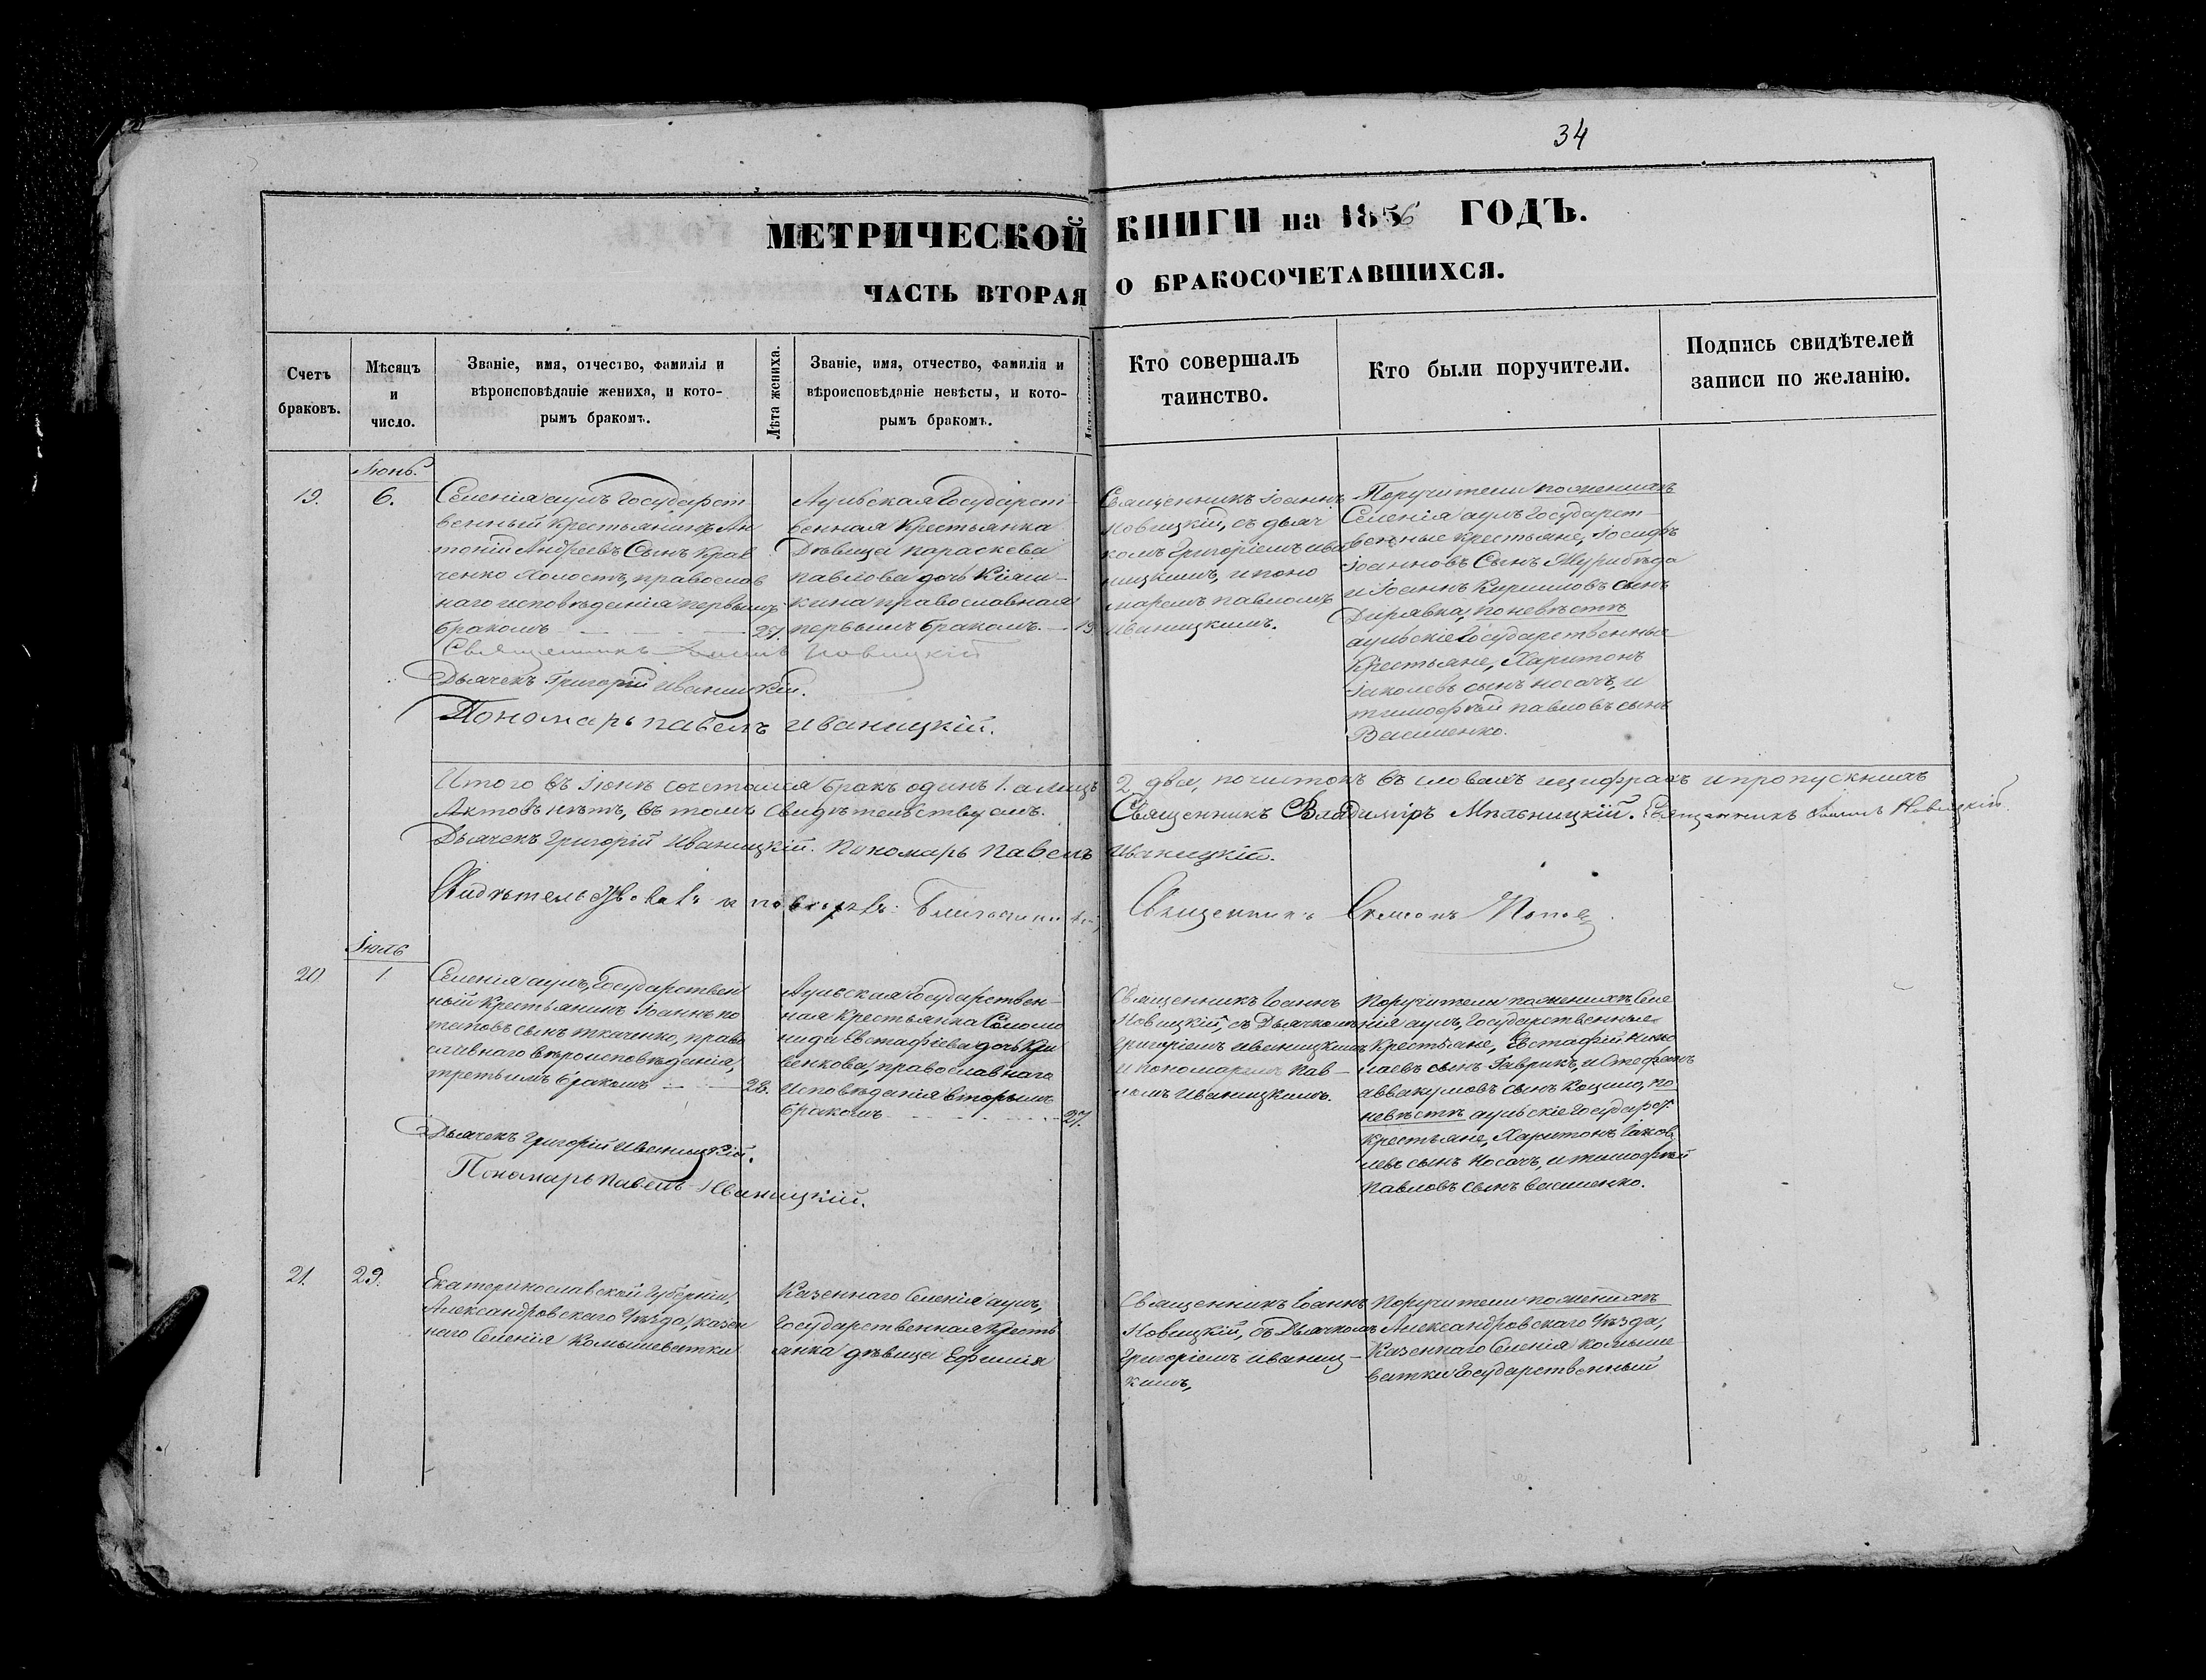 34
МЕТРИЧЕСКОЙ КНИГИ на 1856 ГОДЪ.
ЧАСТЬ ВТОРАЯ О БРАКОСОЧЕТАВШИХСЯ.
Счетъ
браковъ.
Мѣсяцъ
и
число.
Званіе, имя, отчество, фамилія и
вѣроисповѣданіе жениха, и кото-
рымъ бракомъ.
Лѣта жениха.
Званіе, имя, отчество, фамилія и
вѣроисповѣданіе невѣсты, и кото-
рымъ бракомъ.
Кто совершалъ
таинство.
Кто были поручители.
Подпись свидѣтелей
записи по желанію.
Іюнь.
19.
6.
Селенія аулъ Государст
венный Крестьянинъ Ан
тоній Андреевъ Сынъ Крав
ченко Холостъ, православ
наго исповѣданія первымъ
бракомъ
21.
Аульская Государст
венная Крестьянка
Дѣвица Параскева
Павлова дочь
кина православная
первымъ бракомъ. 19
Священникъ Іоаннъ
Новицкій, съ дьяч
комъ Григоріемъ Ива
ницкимъ, и поно
маремъ Павломъ
Иваницкимъ.
Поручители по женихѣ
Селенія аулъ Государст
венные крестьяне, Іосифъ
Іоанновъ Сынъ Журибѣда
и Іоаннъ Кириловъ сынъ
Дирявка, по невѣстѣ
аульскіе Государственные
Крестьяне, Харитонъ
Іаковлевъ сынъ Носачъ, и
Тимофѣй Павловъ сынъ
Василенко.
Священникъ Іоаннъ Новицкій
Дьячекъ Григорій Иваницкій.
Пономарь Павелъ Иваницкій.
Итого въ Іюнѣ сочетался бракъ одинъ 1. а лицъ 2 два, почистокъ въ словахъ и цифрахъ и пропускныхъ
Актовъ нѣтъ, въ томъ свидѣтельствуемъ. Священникъ Владиміръ Мѣльницкій. Священникъ Іоаннъ Новицкій.
Дьячекъ Григорій Иваницкій. Пономарь Павелъ Иваницкій.
Священникъ Симеонъ Попов
Іюль
20
1.
Селенія аулъ, Государствен
ный Крестьянинъ Іоаннъ По
таповъ сынъ Ткаченко, право
славнаго вѣроисповѣданія,
третьимъ бракомъ 28.
Аульская Государствен-
ная Крестьянка Соломо
нида Евстафіева дочь Кри
венкова, православнаго
Исповѣданія вторымъ
бракомъ 27.
Священникъ Іоаннъ
Новицкій, съ Дьячкомъ
Григоріемъ Иваницкимъ
и пономаремъ Пав-
ломъ Иваницкимъ.
Поручители по женихѣ Селе
нія аулъ, Государственные
Крестьяне, Евстафій Нико
лаевъ сынъ Гаврикъ, и Стефанъ
Аввакумовъ сынъ Коцило, по
невѣстѣ аульскіе Государст.
Крестьяне, Харитонъ Іаков
левъ сынъ Носачъ, и Тимофѣй
Павловъ сынъ Василенко.
Дьячекъ Григорій Иваницкій.
Пономарь Павелъ Иваницкій.
21.
29.
Екатеринославской Губерніи,
Александровскаго Уѣзда, казен
наго Селенія Комышеватки
Казеннаго Селенія аулъ,
Государственная Кресть
янка дѣвица Ефимія
Священникъ Іоаннъ
Новицкій, съ Дьячкомъ
Григоріемъ Иваниц-
кимъ,
Поручители по женихѣ
Александровскаго Уѣзда,
Казеннаго Селенія Комыше
ватки Государственный